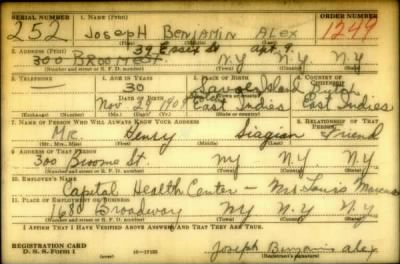 SERIAL NUMBER 1. NAME (Print) ORDER NUMBER
252 JOSEPH BENJAMIN ALEX 1249
(First) (Middle) (Last)
39 Essex St apt. 9.
2. ADDRESS (Print)
300 BROOME ST N.Y N.Y N.Y
(Number and street or R. F. D. number) (Town) (County) (State)
3. TELEPHONE 4. AGE IN YEARS 5. PLACE OF BIRTH 6. COUNTRY OF CITIZENSHIP
— 30 Island Dutch
DATE OF BIRTH
Nov 29 1909 East Indies East Indies
(Exchange) (Number) (Mo.) (Day) (Yr.) (State or country)
7. NAME OF PERSON WHO WILL ALWAYS KNOW YOUR ADDRESS 8. RELATIONSHIP OF THAT PERSON
Mr. Henry Siagian Friend
(Mr., Mrs., Miss) (First) (Middle) (Last)
9. ADDRESS OF THAT PERSON
300 Broome St. NY N.Y N.Y
(Number and street or R. F. D. number) (Town) (County) (State)
10. EMPLOYER'S NAME
Capital Health Center – Mr Louis
11. PLACE OF EMPLOYMENT OR BUSINESS
1680 Broadway NY N.Y N.Y
(Number and street or R. F. D. number) (Town) (County) (State)
I AFFIRM THAT I HAVE VERIFIED ABOVE ANSWERS AND THAT THEY ARE TRUE.
REGISTRATION CARD
D. S. S. Form 1 (over) Joseph Benjamin Alex
(Registrant's signature)